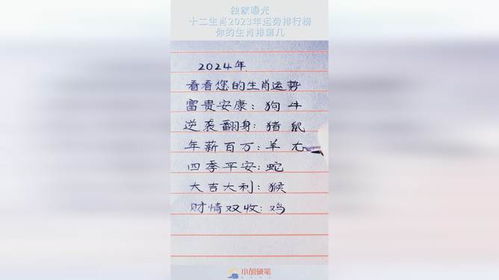 独家曝光
十二生肖2023年运势排行榜
你的生肖排第几
2024年
看看您的生肖运势
富贵安康：狗 牛
逆袭翻身：猪 鼠
年薪百万：羊
四季平安：蛇
大吉大利：猴
财情双收：鸡